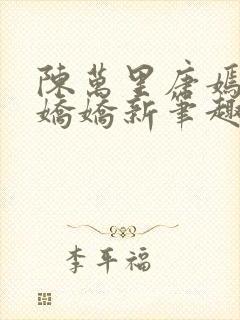 陳萬里唐嫣
嬌嬌新筆趣
李平福